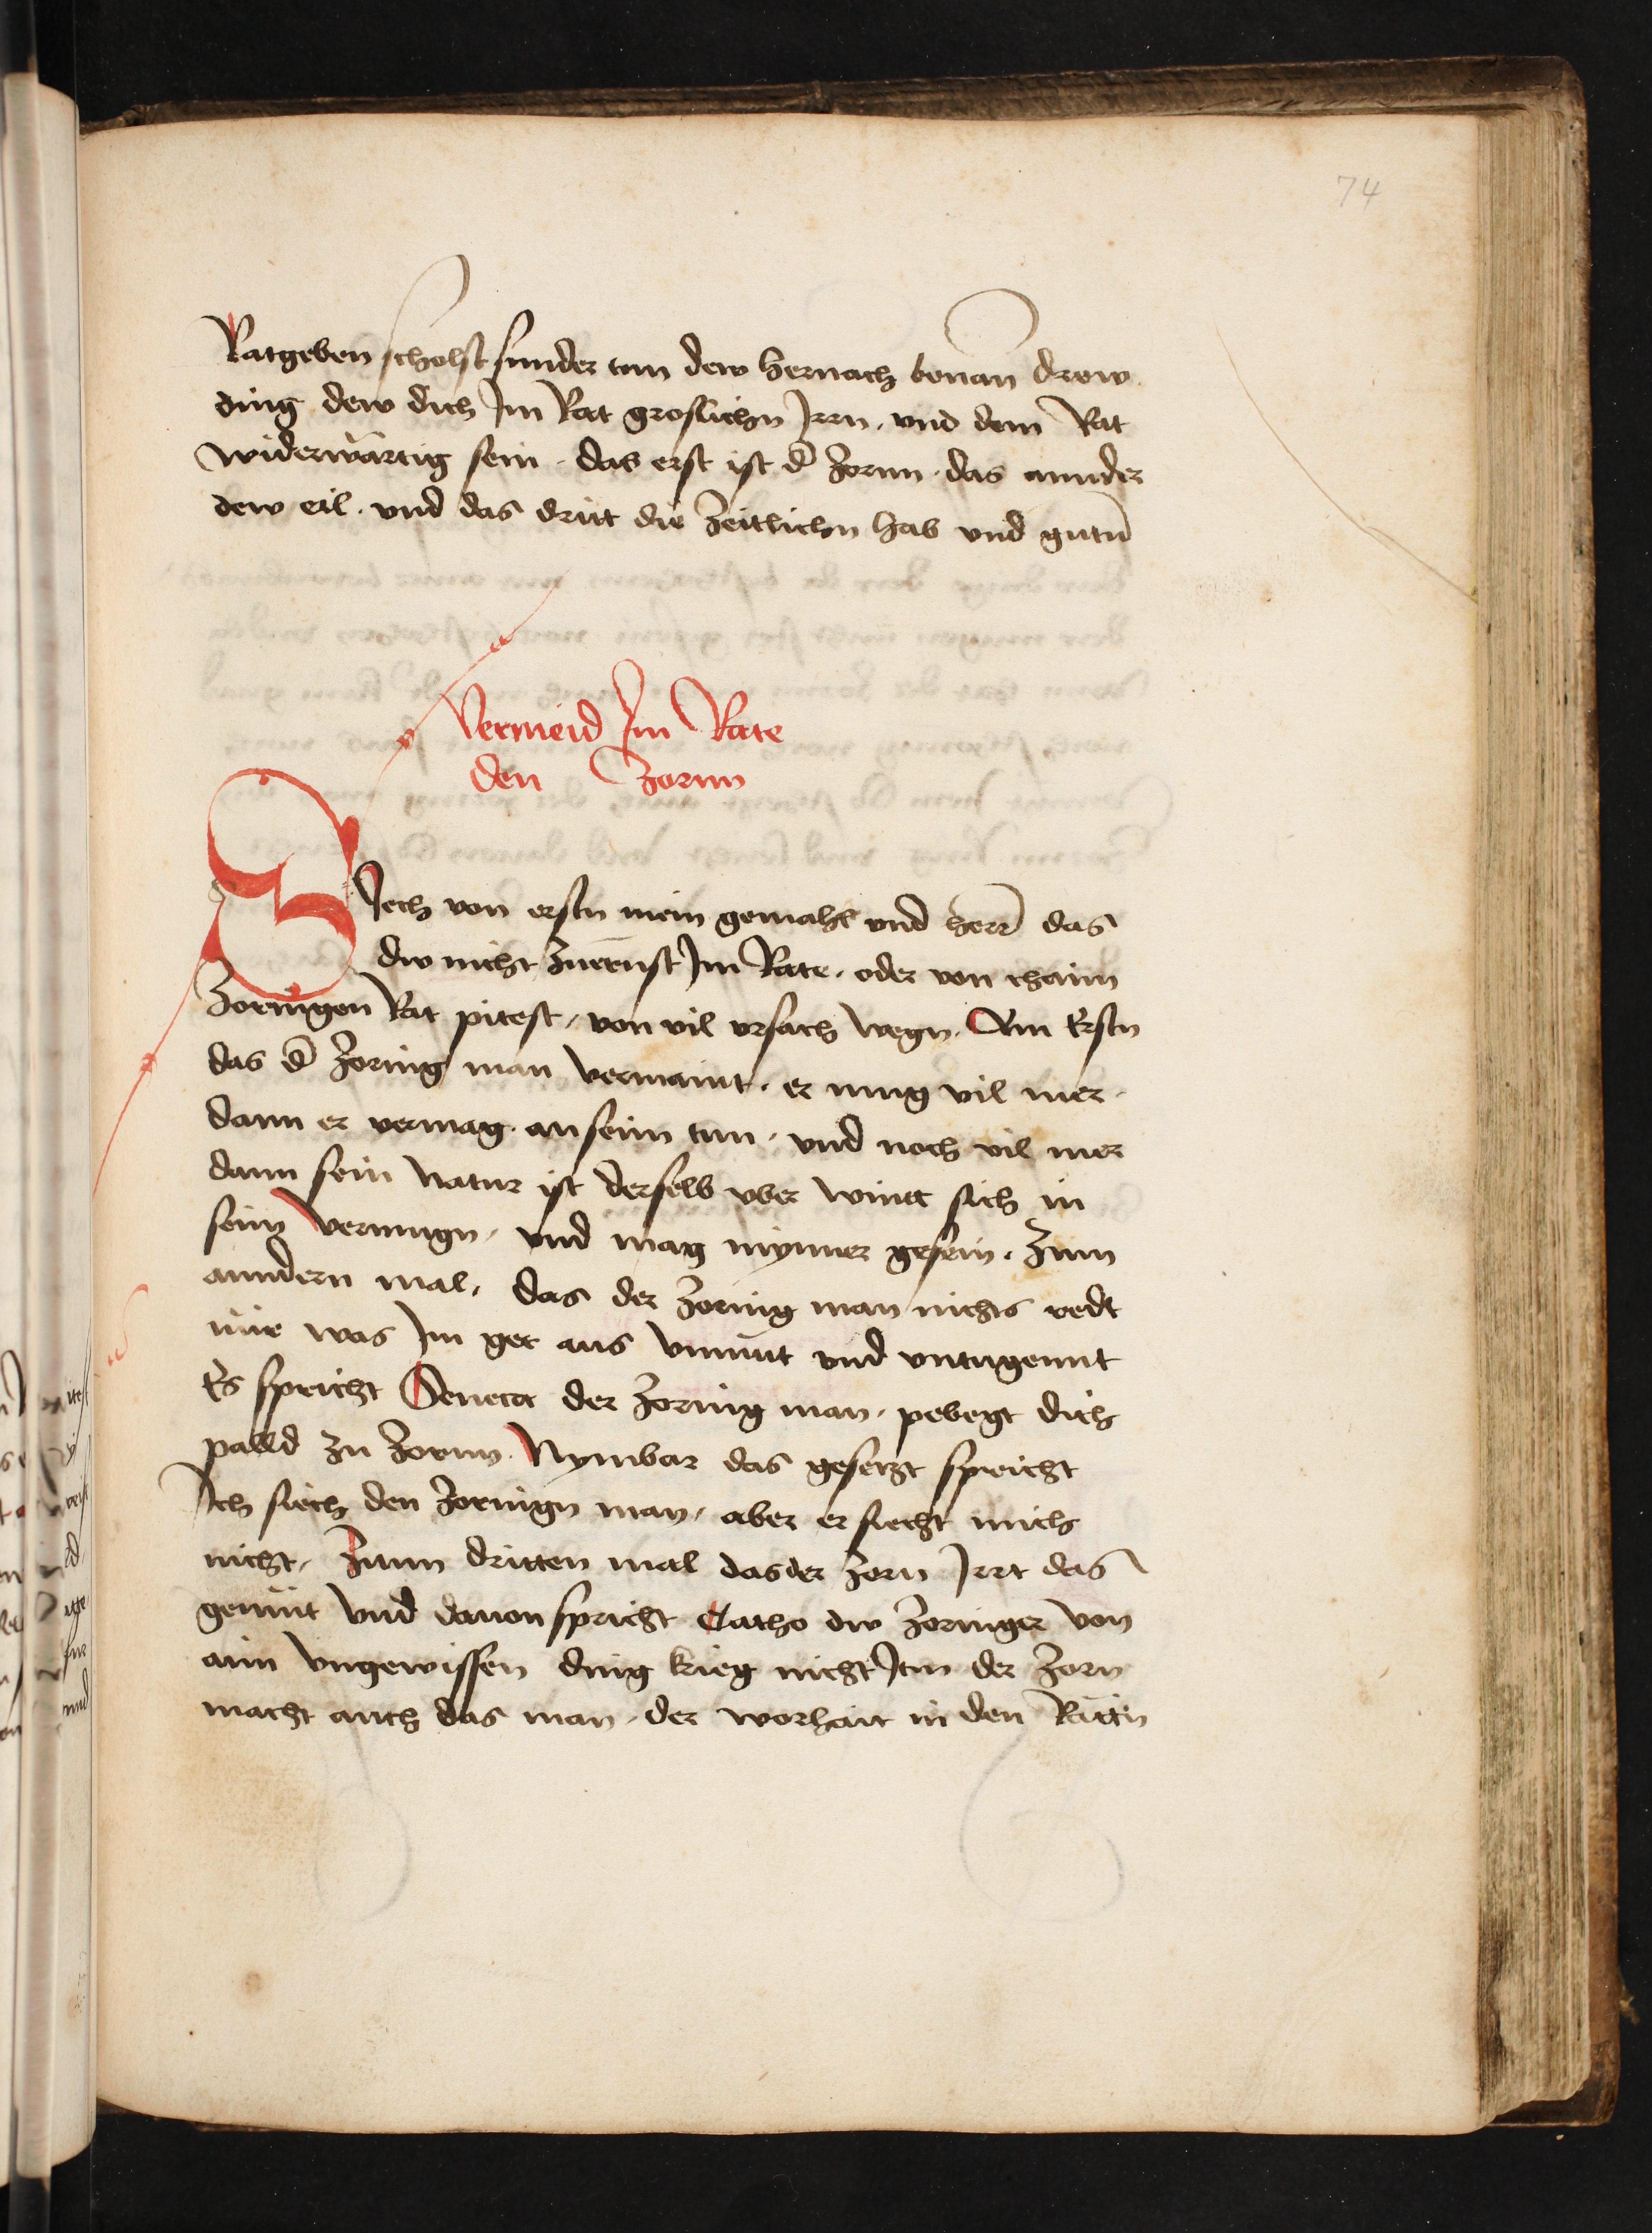 74
Ratgeben scholst sunder tun dew hernach benan̄ drew
ding dew dich Jm Rat groslichn Jrrn · vnd dem Rat
widerwärtig sein · das erst ist d̄ zornn · das annder
dew eil · vnd das dritt die zeitlichn hab vnd gutn̄
Vermeid Jm Rate
den Zornn
SJech von erstn mein gemahl vnd herr̄ das
dw nicht zuernst Jm Rate · oder von chaim
zornigen Rat pitest / von vil vrsach wegn · Am Erstn
das d̄ zornig man vermaint · er mug vil mer ·
dann er vermag · an seim tun · vnd noch vil mer
dann sein natur ist derselb vber wintt sich in
seim vermugn / vnd mag nymmer gesein · Zum
anndern mal / das der zornig man nichts redt
nür was Jm get aus vnmut vnd vntugennt
Es spricht Seneca der zornig man · pebegt dich
palld zu zornn · Nymbar das gesetzt spricht
Jch siech den zornign man / aber er siecht mich
nicht / Zum dritten mal das der zorn Jrrt das
gemüt vnd dauon spricht Catho dw zorniger von
aim vngewissen ding krieg nicht Jtm der zorn
macht auch das man / der worhait in den Rättn